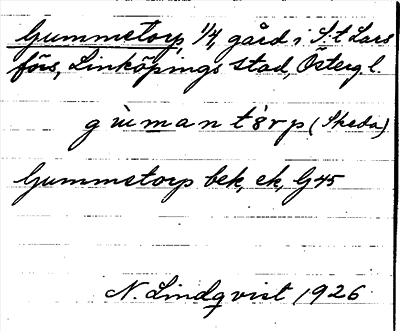 Gummetorp, 1/4, gård i S:t Lars
förs, Linköpings stad, Östergl.
gùmantòrp (Skeda)
Gummetorp bek, ek, G45
N. Lindqvist 1926